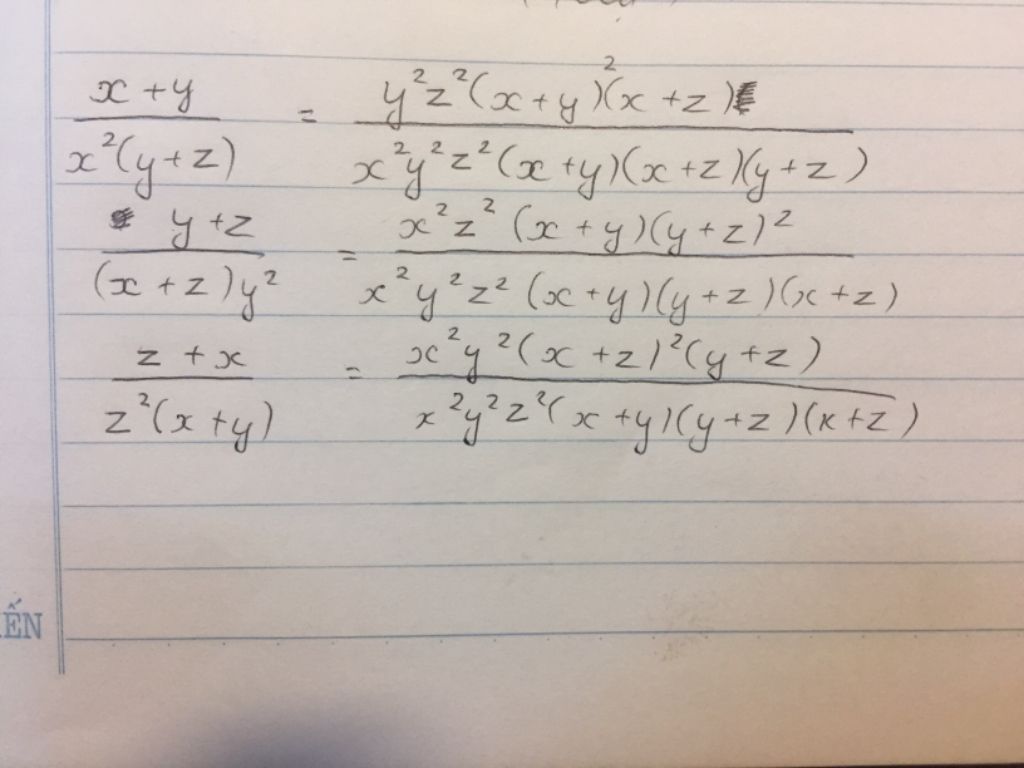 x + y / x²(y+z) = y²z²(x+y)²(x+z) / x²y²z²(x+y)(x+z)(y+z)
y+z / (x+z)y² = x²z²(x+y)(y+z)² / x²y²z²(x+y)(y+z)(x+z)
z+x / z²(x+y) = x²y²(x+z)²(y+z) / x²y²z²(x+y)(y+z)(x+z)
ẾN